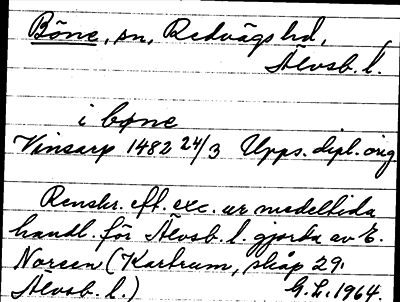 Böne, sn, Redvägs hd,
Älvsb. l.
i bøne
Vinsarp 1482 24/3 Upps. dipl. orig
Renskr. eft. exc. ur medeltida
handl. för Älvsb. l. gjorda av E.
Noreen (Kartrum, skåp 29.
Älvsb. l.) G. L. 1964.